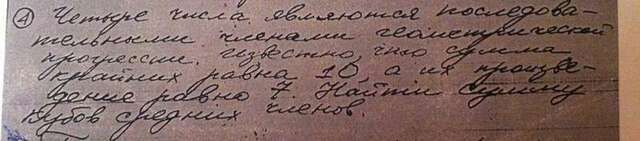 ④ Четыре числа являются последова-
тельными членами геометрической
прогрессии. Известно, что сумма
крайних равна 10, а их произве-
дение равно 7. Найти сумму
кубов средних членов.